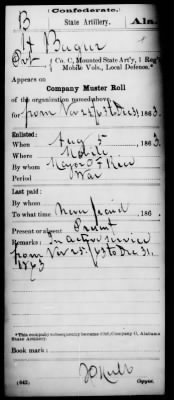 (Confederate.)
B State Artillery. Ala.
H Buger
Pvt Co. C, Mounted State Art'y, 1 Reg't
Mobile Vols., Local Defence.*
Appears on
Company Muster Roll
of the organization named above,
for from Nov 25 /63 to Dec 31, 1863.
Enlisted:
When Aug 5 1863
Where Mobile
By whom Mayor
Period War
Last paid:
By whom
To what time Never paid, 186 .
Present or absent Present
Remarks: In active service
from Nov 25, /63 to Dec 31,
1863
*This company subsequently became (3d) Company C, Alabama
State Artillery.
Book mark:
(642) Copyist.